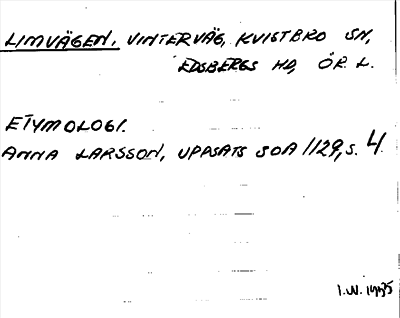 LIMVÄGEN, VINTERVÄG, KVISTBRO SN,
EDSBERGS HD, ÖR. L.
ETYMOLOGI.
ANNA LARSSON, UPPSATS SOA 1129, S. 4.
I.W.